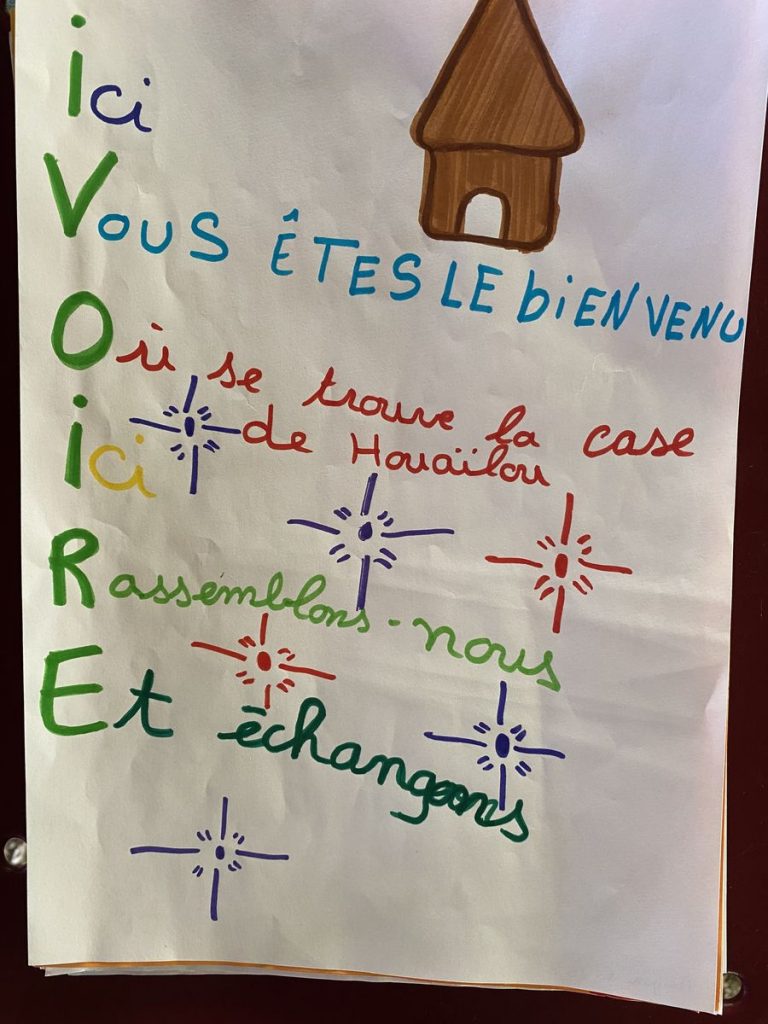 ici
Vous ÊTES LE biENVENU
Où se trouve la case
de Houaïlou
ici
Rassemblons-nous
Et échangeons